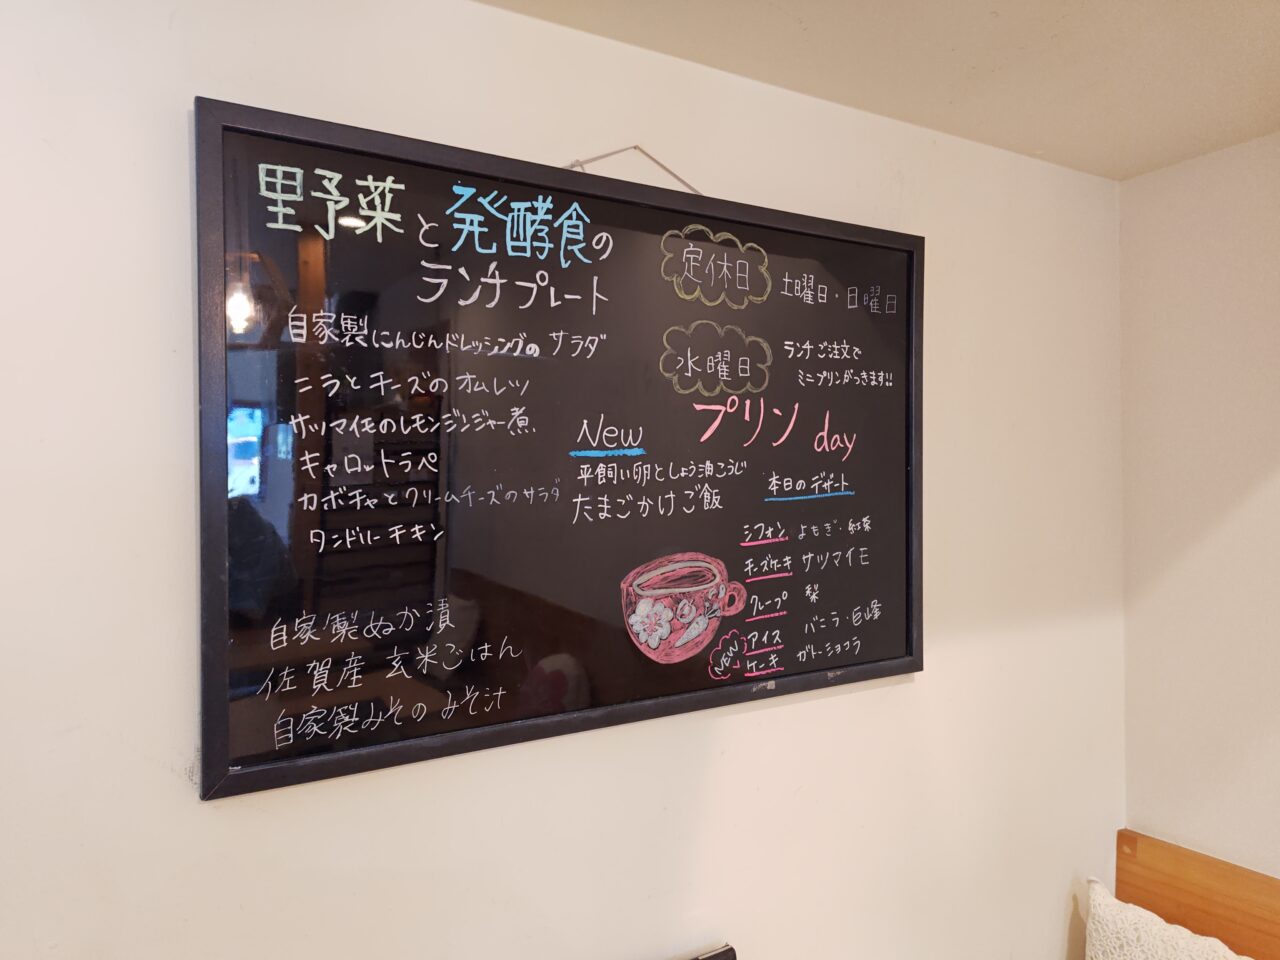 野菜と発酵食の
ランチプレート
自家製にんじんドレッシングのサラダ
ニラとチーズのオムレツ
サツマイモのレモンジンジャー煮
キャロットラペ
カボチャとクリームチーズのサラダ
タンドリーチキン
自家製ぬか漬
佐賀産 玄米ごはん
自家製みそのみそ汁
New
平飼い卵としょう油こうじ
たまごかけご飯
定休日 土曜日・日曜日
水曜日
ランチご注文で
ミニプリンがつきます!!
プリン day
本日のデザート
シフォン よもぎ・紅茶
チーズケーキ サツマイモ
クレープ 梨
アイス バニラ・巨峰
NEW ケーキ ガトーショコラ